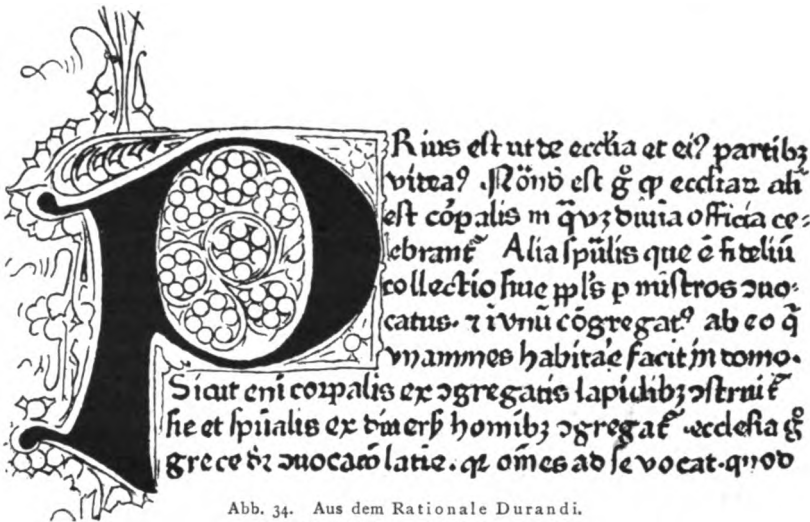 PRius est ut de ecclia et ei⁹ partibꝫ
videa⁹. Nōnd est g̊ ꝙ ecclian̄ alia
est cōpalis in q̄ vꝫ divīa officia ce⸗
lebrant᷑ Alia spūlis que ē fideliū
collectio siue ꝓpl's ꝑ mīstros ↄuo⸗
catus. ⁊ ī vnū cōgregat⁹ ab eo q̄
vnanimes habitare facit in domo.
Sicut enī corpalis ex ↄgregatis lapidibꝫ ↄstruit᷑
sic et spūalis ex diuersꝭ homībꝫ ↄgregat᷑. ecclesia g̊
grece dr̄ ↄuocatō latīe. qꝛ omēs ad se vocat. quod
Abb. 34. Aus dem Rationale Durandi.